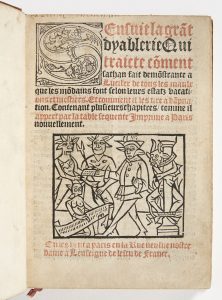 Sensuit la grãt
dyablerie Qui
traicte cõment
sathan fait demõstrance a
Lucifer de tous les maulx
que les mõdains font selon leurs estatz vacati
ons et mestiers. Et comment il les tire a dãpna
tion. Contenant plusieurs chapitres comme il
appert par la table sequente Imprime a Paris
nouuellement.
paris en la Rue neufue nostre
dame a Lenseigne de lescu de France.